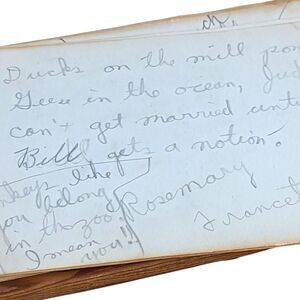 Ducks on the mill pon
Geese in the ocean, Jud
can't get married unti
Bill gets a notion.
nkeys like
you belong
in the zoo
I mean
you!!
Rosemary
Frances